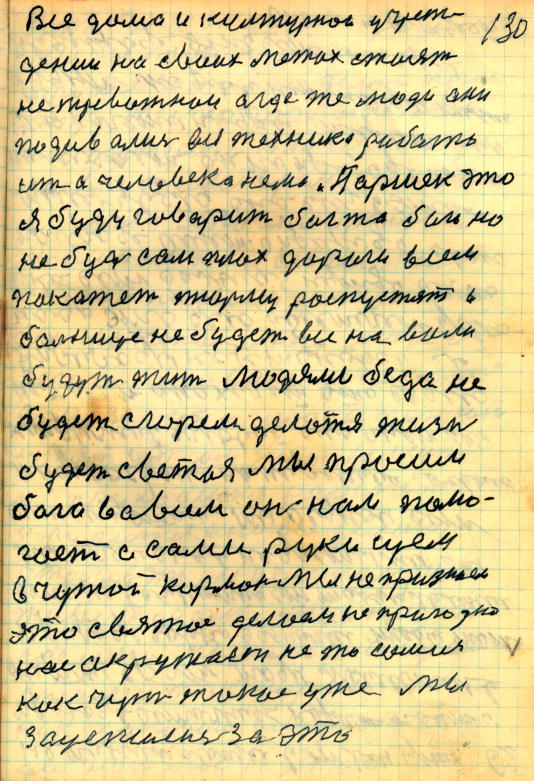 Все дома и културное учреж-
130
дении на своих метах стоят
не тревожном а где же люди они
подив ались все техника работь
ит а человека нема. Паршек это
я буду говарит болта бол но
не буд сам плох дорога всем
покажет тюрму роспустят и
болнице не будет все на воли
будут жит людями беда не
будет с морем делотя жизн
будет светоя мы просим
бога вовсем он нам помо-
гает а сами руки суем
в чужой кормон мы не признаем
это святое делаем не пригодно
нас окружает не то самия
как чуть такое уже мы
за это